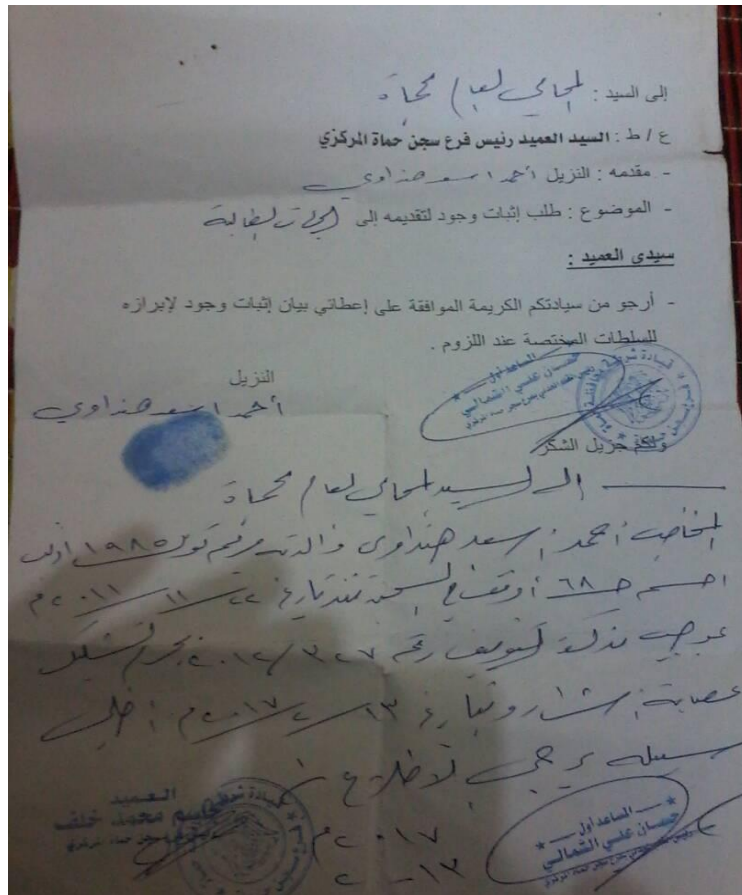 إلى السيد : المحامي العام بحماة
ع / ط : السيد العميد رئيس فرع سجن حماة المركزي
- مقدمه : النزيل أحمد اسعد هنداوي
- الموضوع : طلب إثبات وجود لتقديمه إلى الجهات الطالبة
سيدي العميد :
- أرجو من سيادتكم الكريمة الموافقة على إعطائي بيان إثبات وجود لإبرازه
للسلطات المختصة عند اللزوم .
النزيل
أحمد اسعد هنداوي
المساعد أول
حسان علي الشمالي
ولكم جزيل الشكر
إلى السيد المحامي العام بحماة
أحمد اسعد هنداوي والدته مريم تولد ١٩٨٥ ادلب
٦٨ أوقف في السجن منذ تاريخ ٢٢ / ١١ / ٢٠١١ م
بموجب مذكرة توقيف رقم ٣٢٧ / ٢٠١٢ بجرم تشكيل
عصابة أشرار وبتاريخ ١٣ / ٢ / ٢٠١٧ م أخلي
سبيله يرجى الاطلاع
العميد
جاسم محمد خلف
٢٠١٧ م
١٣ - ٢
المساعد أول
حسان علي الشمالي